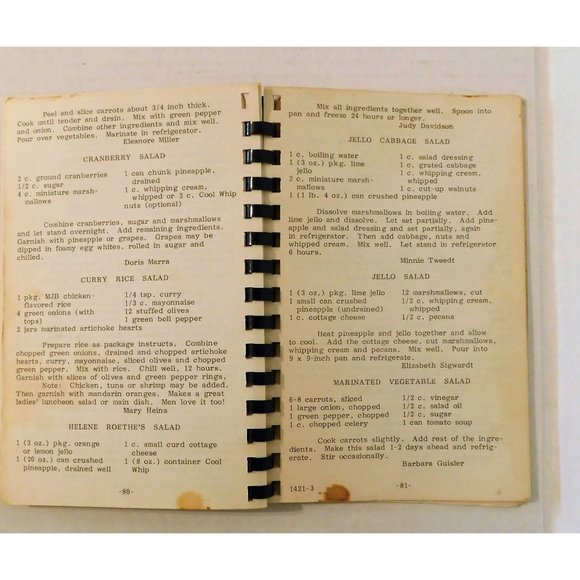 Peel and slice carrots about 3/4 inch thick.
Cook until tender and drain. Mix with green pepper
and onion. Combine other ingredients and mix well.
Pour over vegetables. Marinate in refrigerator.
Eleanore Miller
CRANBERRY SALAD
2 c. ground cranberries
1/2 c. sugar
4 c. miniature marsh-
mallows
1 can chunk pineapple,
drained
1 c. whipping cream,
whipped or 2 c. Cool Whip
nuts (optional)
Combine cranberries, sugar and marshmallows
and let stand overnight. Add remaining ingredients.
Garnish with pineapple or grapes. Grapes may be
dipped in foamy egg whites, rolled in sugar and
chilled.
Doris Marra
CURRY RICE SALAD
1 pkg. MJB chicken-
flavored rice
4 green onions (with
tops)
2 jars marinated artichoke hearts
1/4 tsp. curry
1/3 c. mayonnaise
12 stuffed olives
1 green bell pepper
Prepare rice as package instructs. Combine
chopped green onions, drained and chopped artichoke
hearts, curry, mayonnaise, sliced olives and chopped
green pepper. Mix with rice. Chill well, 12 hours.
Garnish with slices of olives and green pepper rings.
Note: Chicken, tuna or shrimp may be added.
Then garnish with mandarin oranges. Makes a great
ladies' luncheon salad or main dish. Men love it too!
Mary Heins
HELENE ROETHE'S SALAD
1 (3 oz.) pkg. orange
or lemon jello
1 (20 oz.) can crushed
pineapple, drained well
1 c. small curd cottage
cheese
1 (8 oz.) container Cool
Whip
-80-
Mix all ingredients together well. Spoon into
pan and freeze 24 hours or longer.
Judy Davidson
JELLO CABBAGE SALAD
1 c. boiling water
1 (3 oz.) pkg. lime
jello
2 c. miniature marsh-
mallows
1 (1 lb. 4 oz.) can crushed pineapple
1 c. salad dressing
1 c. grated cabbage
1 c. whipping cream,
whipped
1 c. cut-up walnuts
Dissolve marshmallows in boiling water. Add
lime jello and dissolve. Let set partially. Add pine-
apple and salad dressing and set partially, again
in refrigerator. Then add cabbage, nuts and
whipped cream. Mix well. Let stand in refrigerator
6 hours.
Minnie Tweedt
JELLO SALAD
1 (3 oz.) pkg. lime jello
1 small can crushed
pineapple (undrained)
1 c. cottage cheese
12 marshmallows, cut
1/2 c. whipping cream,
whipped
1/2 c. pecans
Heat pineapple and jello together and allow
to cool. Add the cottage cheese, cut marshmallows,
whipping cream and pecans. Mix well. Pour into
9 x 9-inch pan and refrigerate.
Elizabeth Sigwardt
MARINATED VEGETABLE SALAD
6-8 carrots, sliced
1 large onion, chopped
1 green pepper, chopped
1 c. chopped celery
1/2 c. vinegar
1/2 c. salad oil
1/2 c. sugar
1 can tomato soup
Cook carrots slightly. Add rest of the ingre-
dients. Make this salad 1-2 days ahead and refrig-
erate. Stir occasionally.
Barbara Guisler
1421-3
-81-